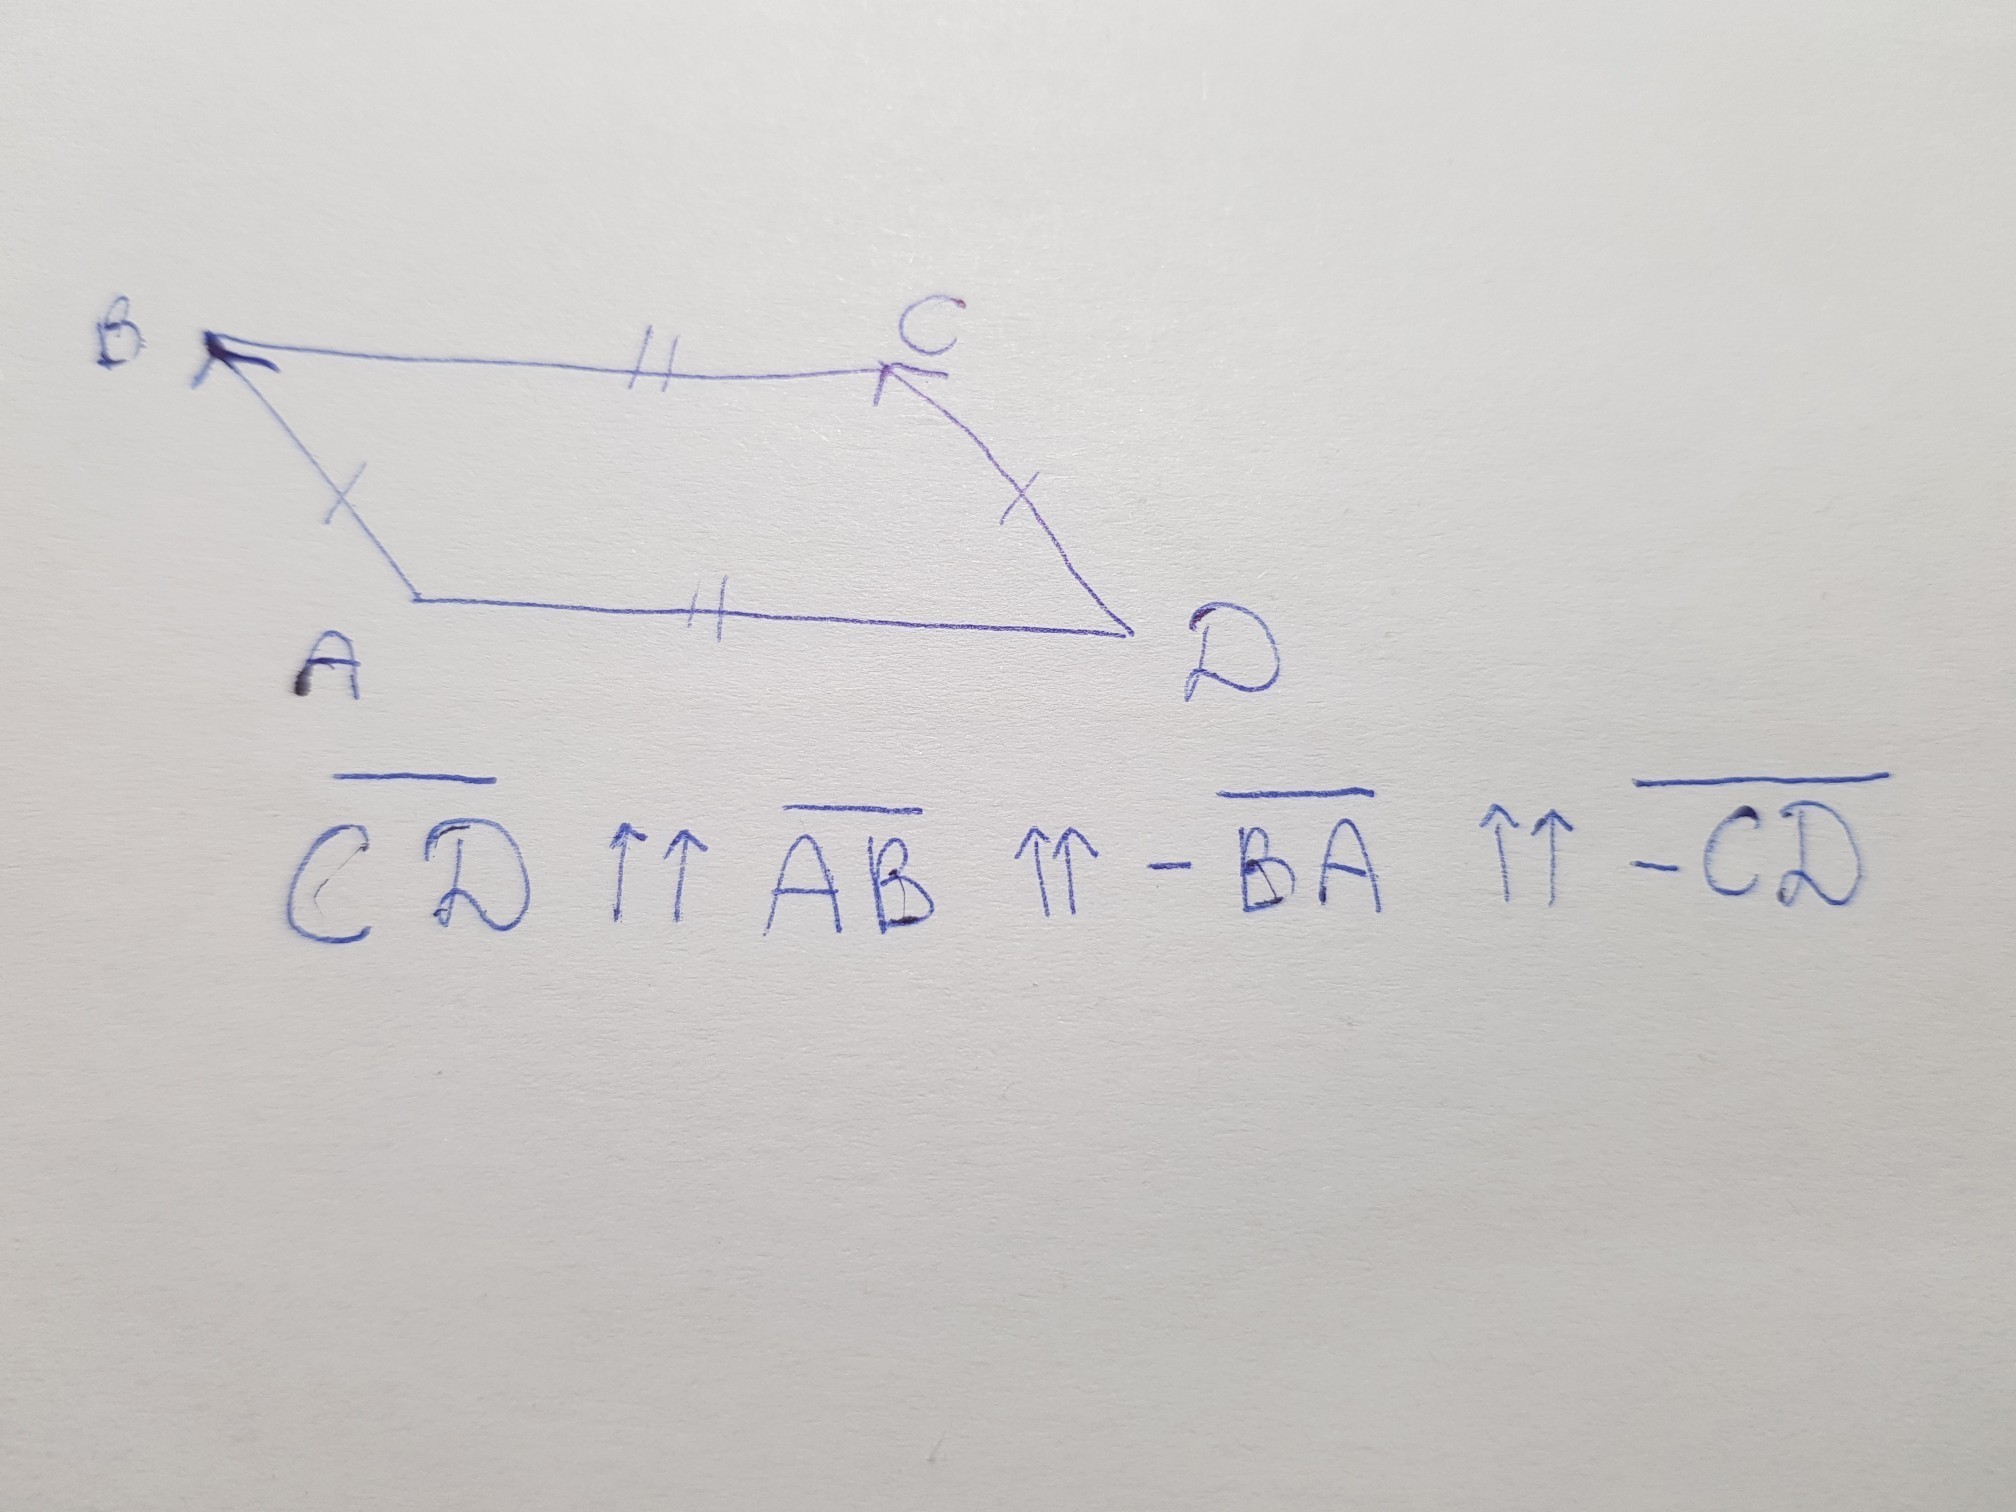 B
C
A
D
C͞D ↑↑ A͞B ↑↑ -B͞A ↑↑ -͞C͞D